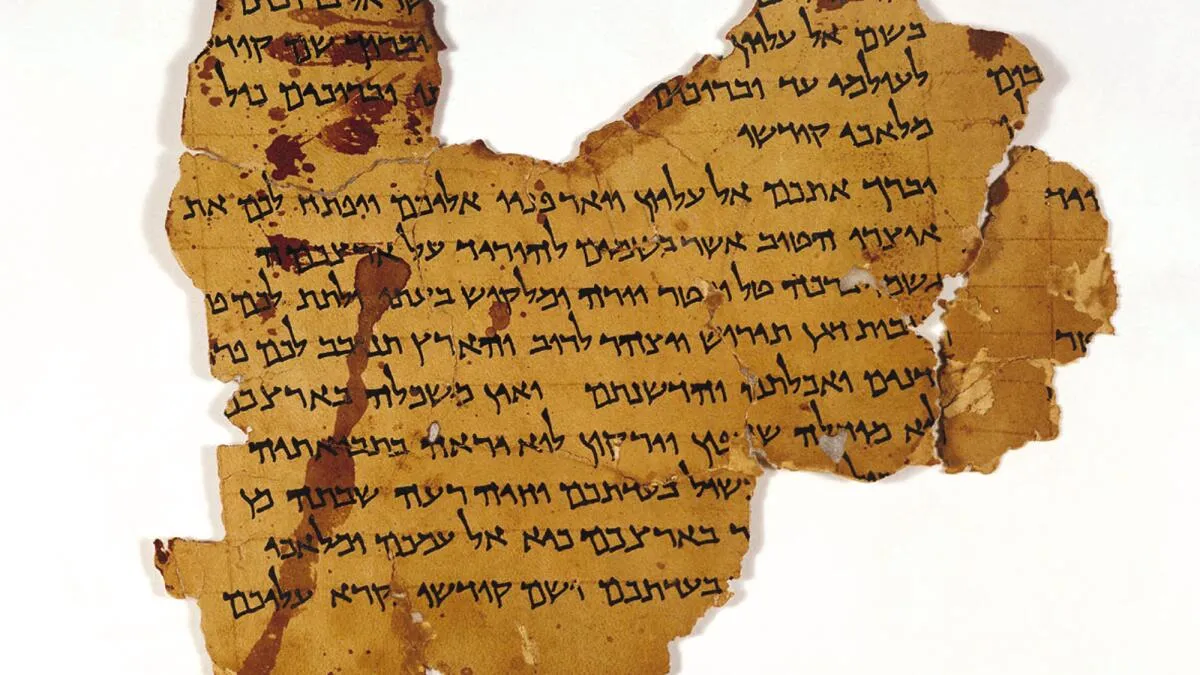 בשם אל עליון וברוך שם קוד
לעולמי עד וברוכים כול
מלאכי קודשו
יברך אתכם אל עליון ויאר פניו אליכם ויפתח לכם את
אוצרו הטוב אשר בשמים להוריד על ארצכם
גשמי ברכה טל ומטר יורה ומלקוש בעתו ולתת לכם
דגן תירוש ויצהר לרוב והארץ תנובב לכם
ואכלתם והדשנתם ואין משכלה בארצכם
מוחלה וירקון לוא יראה בתבואתיה
בעדתכם וחיה רעה שבתה מן
בארצכם כיא אל עמכם ומלאכי
בעדתכם ושם קודשו נקרא עליכם